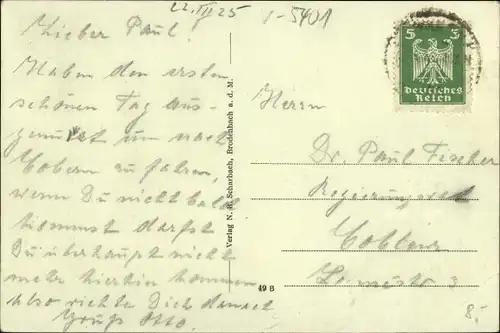 22.VII.25
I-5401
Lieber Paul!
Haben den ersten
schönen Tag aus-
genutzt um nach
Cobern zu fahren,
wenn Du nicht bald
kommst darfst
Du überhaupt nicht
mehr hierhin kommen
also richte Dich danach
Gruß Otto.
Verlag N. Scharbach, Brodenbach a. d. M.
49 B
5 3
Deutsches
Reich
Herrn
Dr. Paul Fischer
Regierungsrat
Coblenz
3
8.-